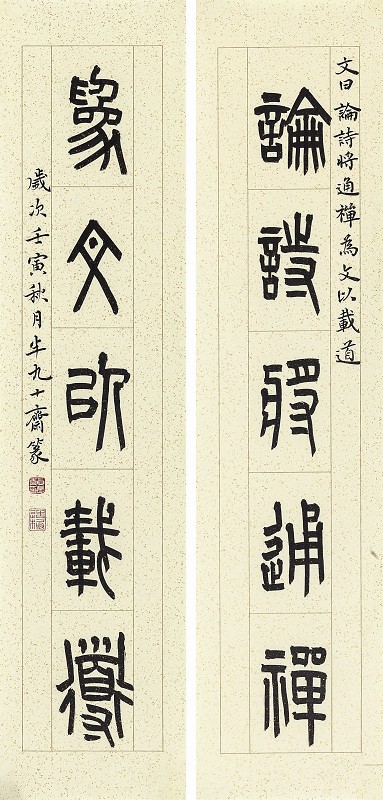 文曰論詩將通禪為文以載道
論詩將通禪
為文以載道
歲次壬寅秋月年九十齋篆